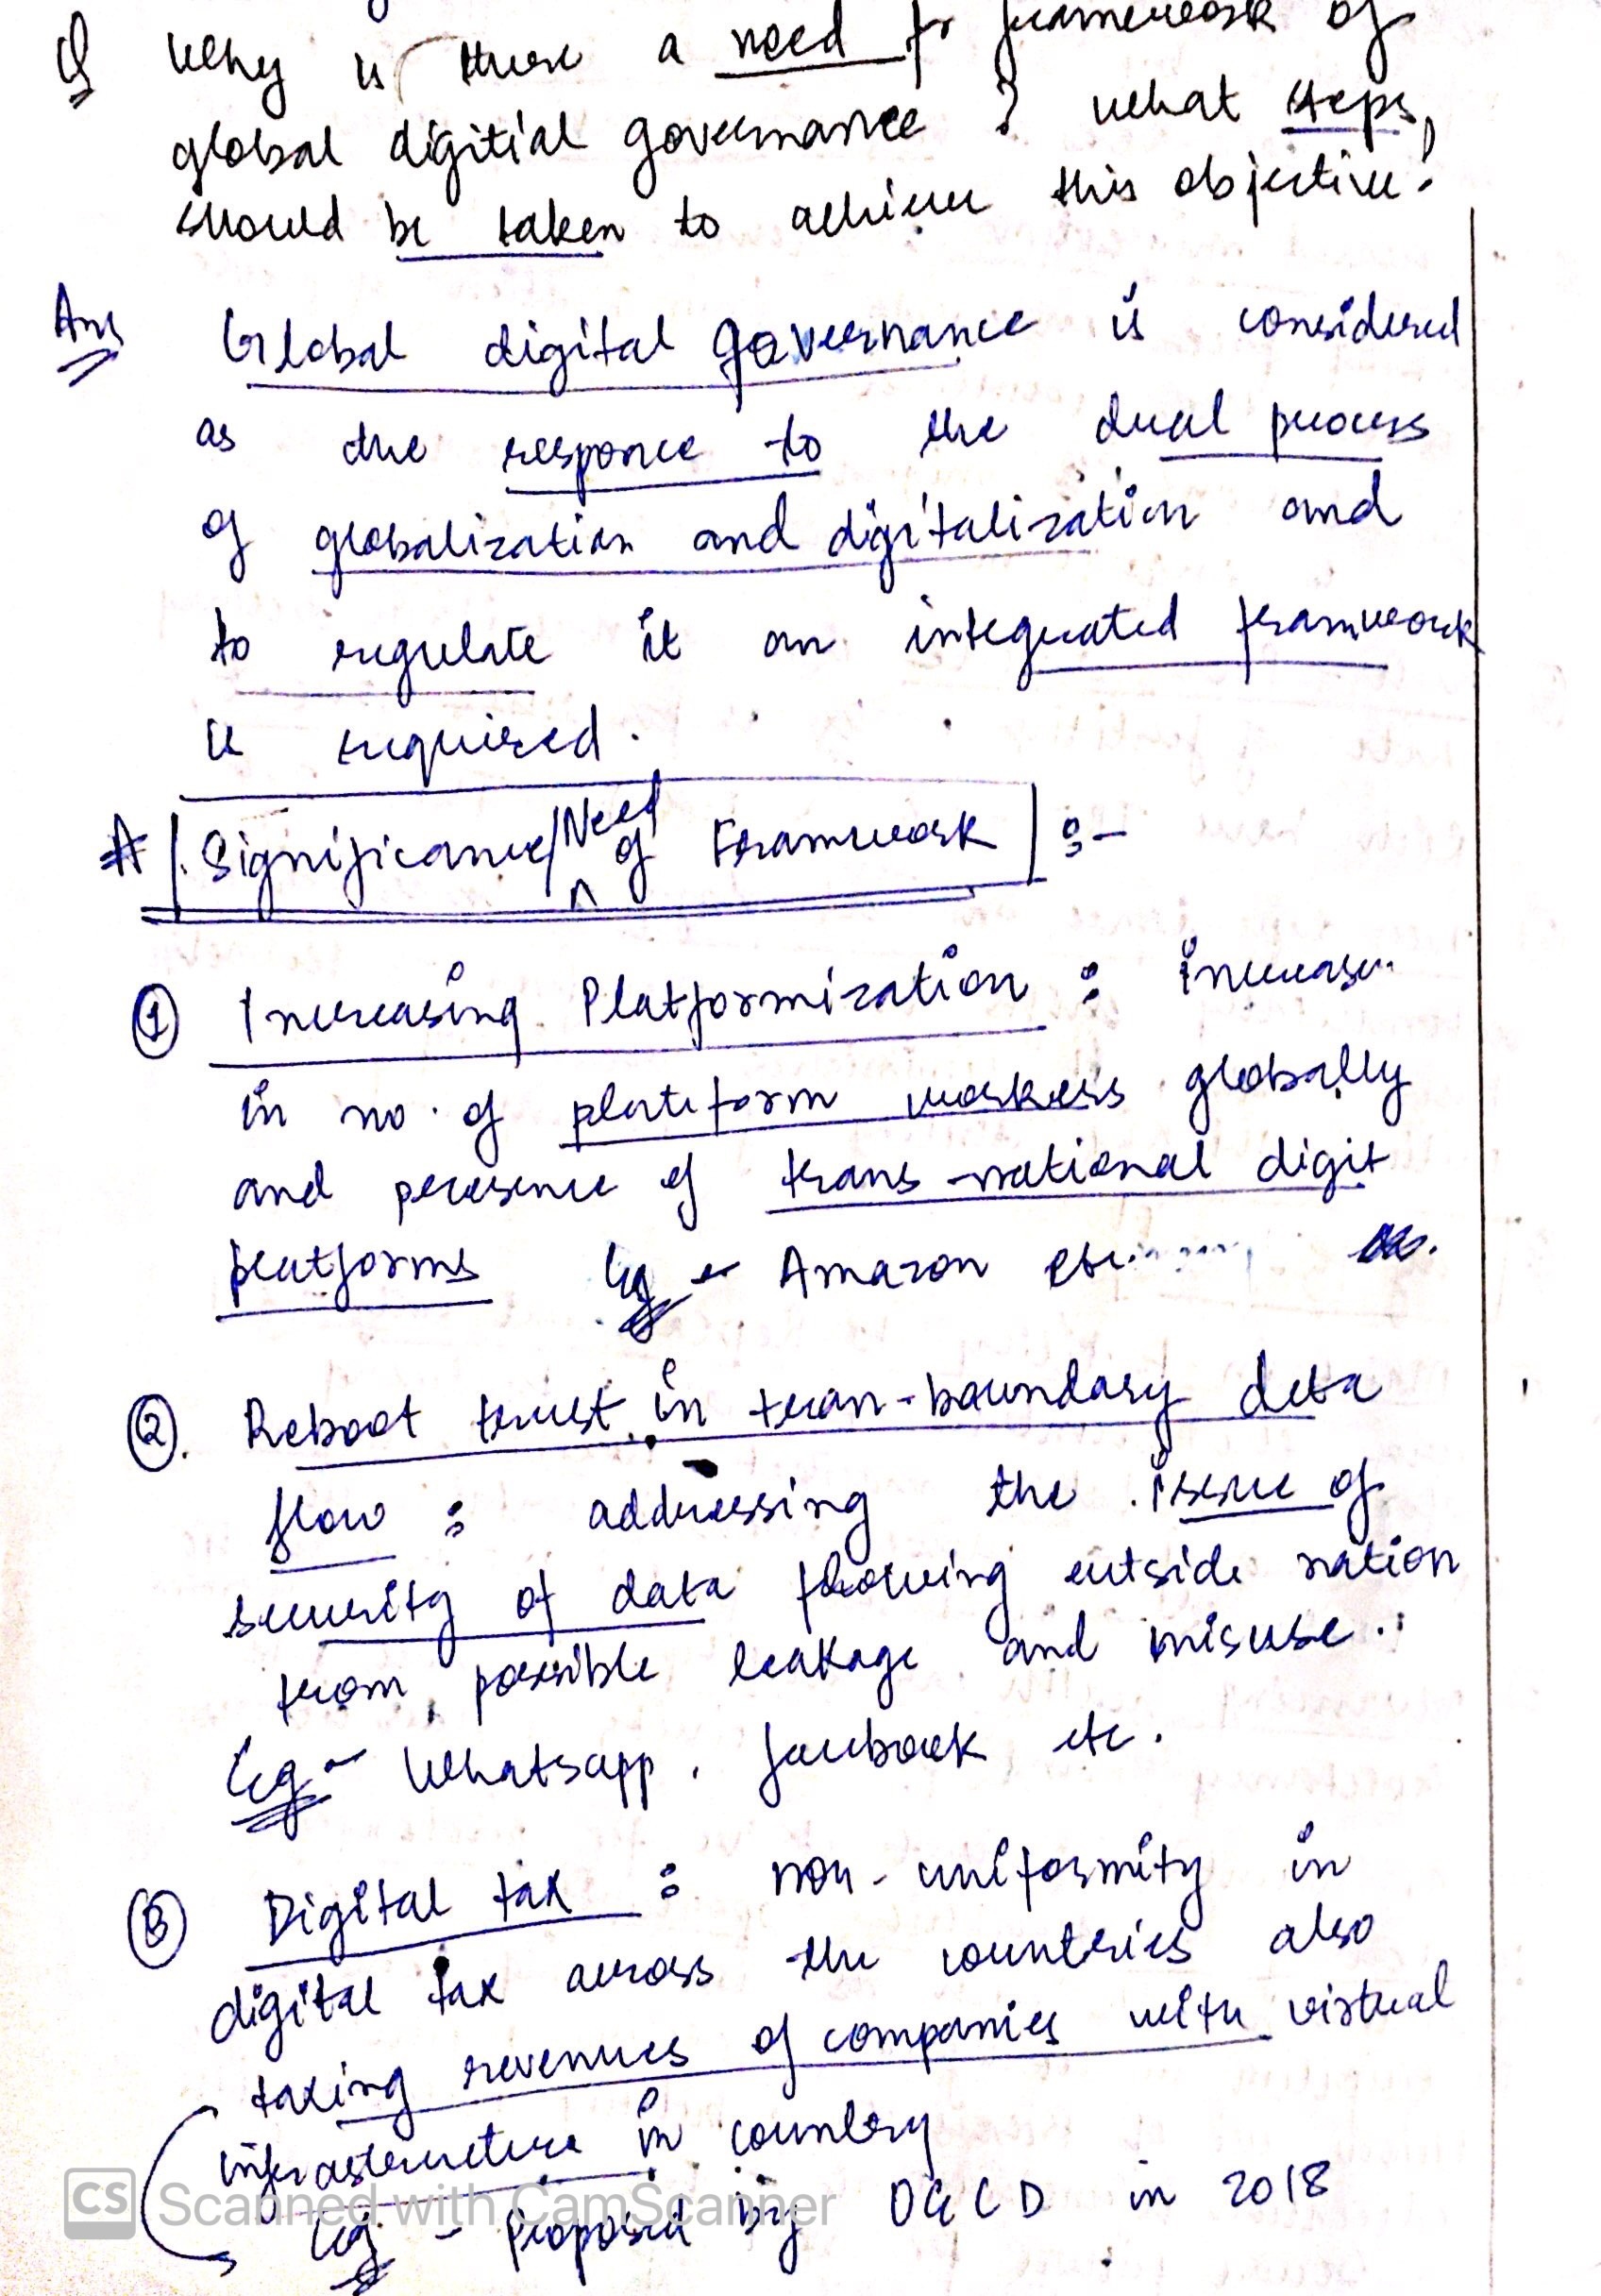 Q Why is there a need for framework of
global digitial governance ? What steps
should be taken to achieve this objective?
Ans Global digital governance is considered
as the responce to the dual process
of globalization and digitalization and
to regulate it an integrated framework
is required.
# Significance/Need of Framework :-
① Increasing Platformization : increase
in no. of platform workers globally
and presence of trans-national digit
platforms Eg - Amazon etc.
②. Reboot trust in tran-boundary data
flow : addressing the issue of
security of data flowing outside nation
from possible leakage and misuse.
Eg - Whatsapp, facebook etc.
③ Digital tax : non-uniformity in
digital tax across the countries also
taxing revenues of companies with virtual
infrastructure in country
Eg - Proposed by OECD in 2018
CS Scanned with CamScanner